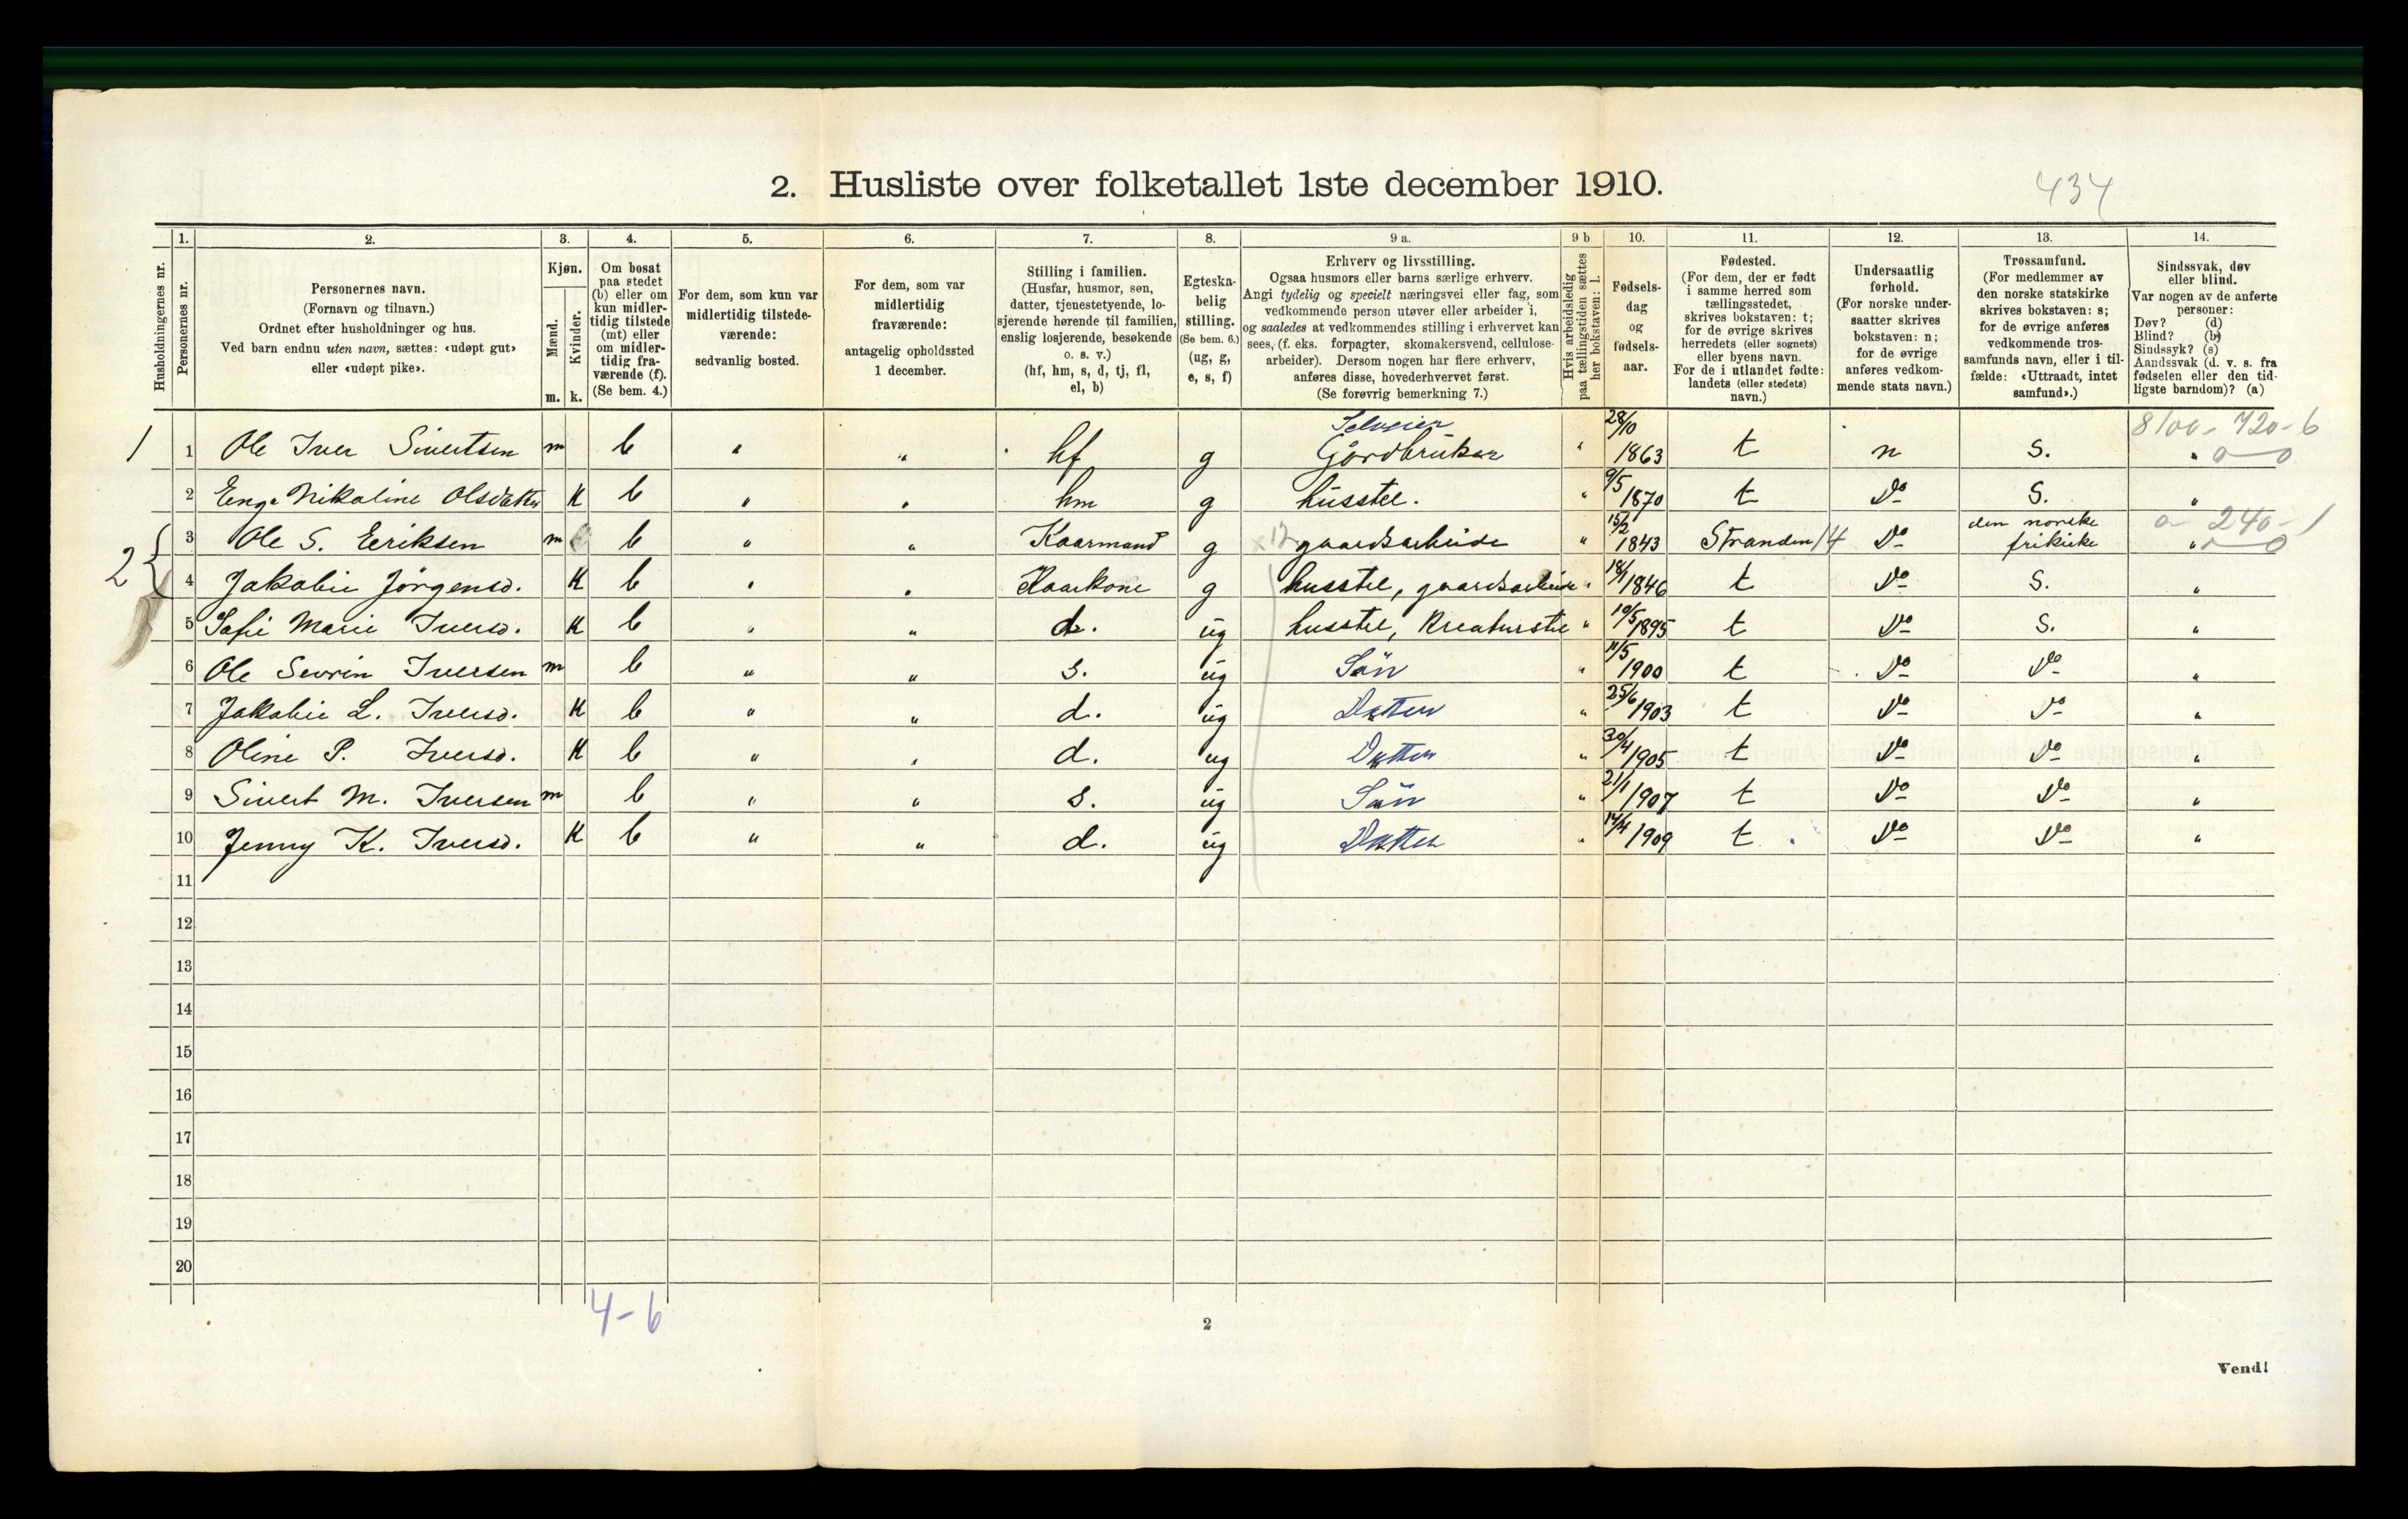 2. Husliste over folketallet 1ste december 1910.
434
Husholdningernes nr.
1. Personernes nr.
2. Personernes navn.
(Fornavn og tilnavn.)
Ordnet efter husholdninger og hus.
Ved barn endnu uten navn, sættes: «udøpt gut»
eller «udøpt pike».
3. Kjøn.
Mænd. m.
Kvinder. k.
4. Om bosat
paa stedet
(b) eller om
kun midler-
tidig tilstede
(mt) eller
om midler-
tidig fra-
værende (f).
(Se bem. 4.)
5. For dem, som kun var
midlertidig tilstede-
værende:
sedvanlig bosted.
6. For dem, som var
midlertidig
fraværende:
antagelig opholdssted
1 december.
7. Stilling i familien.
(Husfar, husmor, søn,
datter, tjenestetyende, lo-
sjerende hørende til familien,
enslig losjerende, besøkende
o. s. v.)
(hf, hm, s, d, tj, fl,
el, b)
8. Egteska-
belig
stilling.
(Se bem. 6.)
(ug, g,
e, s, f)
9 a. Erhverv og livsstilling.
Ogsaa husmors eller barns særlige erhverv.
Angi tydelig og specielt næringsvei eller fag, som
vedkommende person utøver eller arbeider i,
og saaledes at vedkommendes stilling i erhvervet kan
sees, (f. eks. forpagter, skomakersvend, cellulose-
arbeider). Dersom nogen har flere erhverv,
anføres disse, hovederhvervet først.
(Se forøvrig bemerkning 7.)
9 b Hvis arbeidsledig
paa tællingstiden sættes
her bokstaven: l.
10. Fødsels-
dag
og
fødsels-
aar.
11. Fødested.
(For dem, der er født
i samme herred som
tællingsstedet,
skrives bokstaven: t;
for de øvrige skrives
herredets (eller sognets)
eller byens navn.
For de i utlandet fødte:
landets (eller stedets)
navn.)
12. Undersaatlig
forhold.
(For norske under-
saatter skrives
bokstaven: n;
for de øvrige
anføres vedkom-
mende stats navn.)
13. Trossamfund.
(For medlemmer av
den norske statskirke
skrives bokstaven: s;
for de øvrige anføres
vedkommende tros-
samfunds navn, eller i til-
fælde: «Uttraadt, intet
samfund».)
14. Sindssvak, døv
eller blind.
Var nogen av de anførte
personer:
Døv? (d)
Blind? (b)
Sindssyk? (s)
Aandssvak (d. v. s. fra
fødselen eller den tid-
ligste barndom)? (a)
8100 - 720 - 6
1 1 Ole Iver Sivertsen m b " " hf g Selveier Gårdbruker " 28/10 1863 t n S. " 0 0
2 Enge Nikoline Olsdatter K b " " hm g husstel. " 9/5 1870 t Do S. "
0 - 240 - 1
2 { 3 Ole S. Eeriksen m b " " Kaarmand g x12 gaardsarbeide " 15/2 1843 Stranden 14 Do den norske frikirke "
4 Jakobie Jörgensd. K b " " Kaarkone g husstel, gaardsarbeide " 18/1 1846 t Do S. "
5 Safie Marie Iversd. K b " " d. ug husstel, Kreaturstel " 10/5 1895 t Do S. "
6 Ole Sevrin Iversen m b " " s. ug Sön " 11/5 1900 t Do Do "
7 Jakobie L. Iversd. K b " " d. ug Datter " 25/6 1903 t Do Do "
8 Oline P. Iversd. K b " " d. ug Datter " 30/4 1905 t Do Do "
9 Sivert M. Iversen m b " " s. ug Sön " 21/1 1907 t Do Do "
10 Jenny K. Iversd. K b " " d. ug Datter " 14/4 1909 t Do Do "
11
12
13
14
15
16
17
18
19
20
4-6
2
Vend!